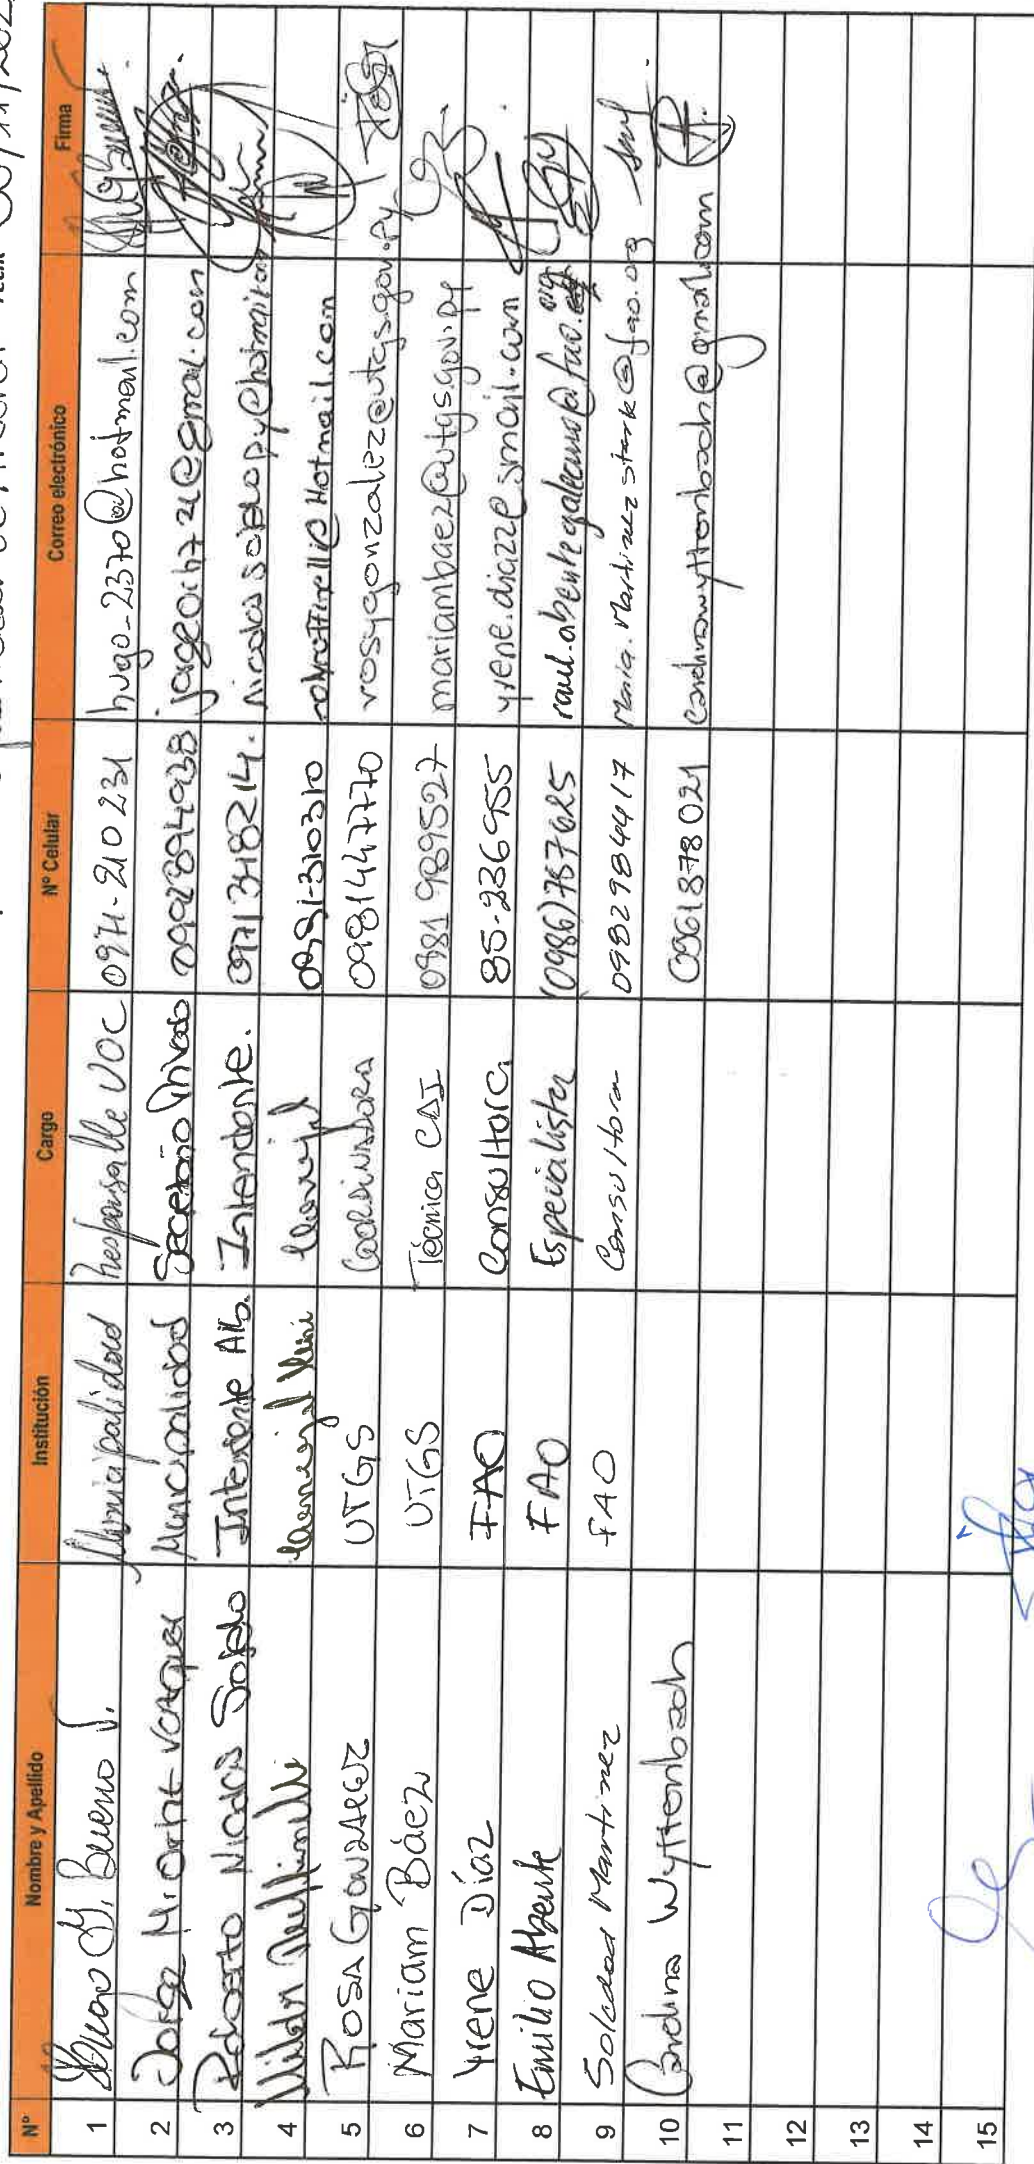 Nº Nombre y Apellido Institución Cargo Nº Celular Correo electrónico Firma
1 Hugo G. Bueno V. Municipalidad Responsable UOC 0971-210 231 hugo-2370@hotmail.com
2 Jorge M. Ortiz Municipalidad Secretario Privado 0992894938 @gmail.com
3 Roberto Nicolás Sotelo Intendente Alb. Intendente. 0971348214.
4 Concejal 0981-310310 @Hotmail.com
5 ROSA GONZALEZ UTGS COORDINADORA 0981447770 rosygonzalez@utgs.gov.py
6 Mariam Báez UTGS Técnica 0981 989527 mariambaez@utgs.gov.py
7 Yrene Díaz FAO Consultora 85-236955 yrene.diazz@gmail.com
8 Emilio Abente FAO Especialista (0986)787625 raul.abentegaleano@fao.org
9 Soledad Martinez FAO Consultora 0982984417 Maria.Martinezstark@fao.org
10 Carolina Wyttenbach 0961878021 carolinawyttenbach@gmail.com
11
12
13
14
15